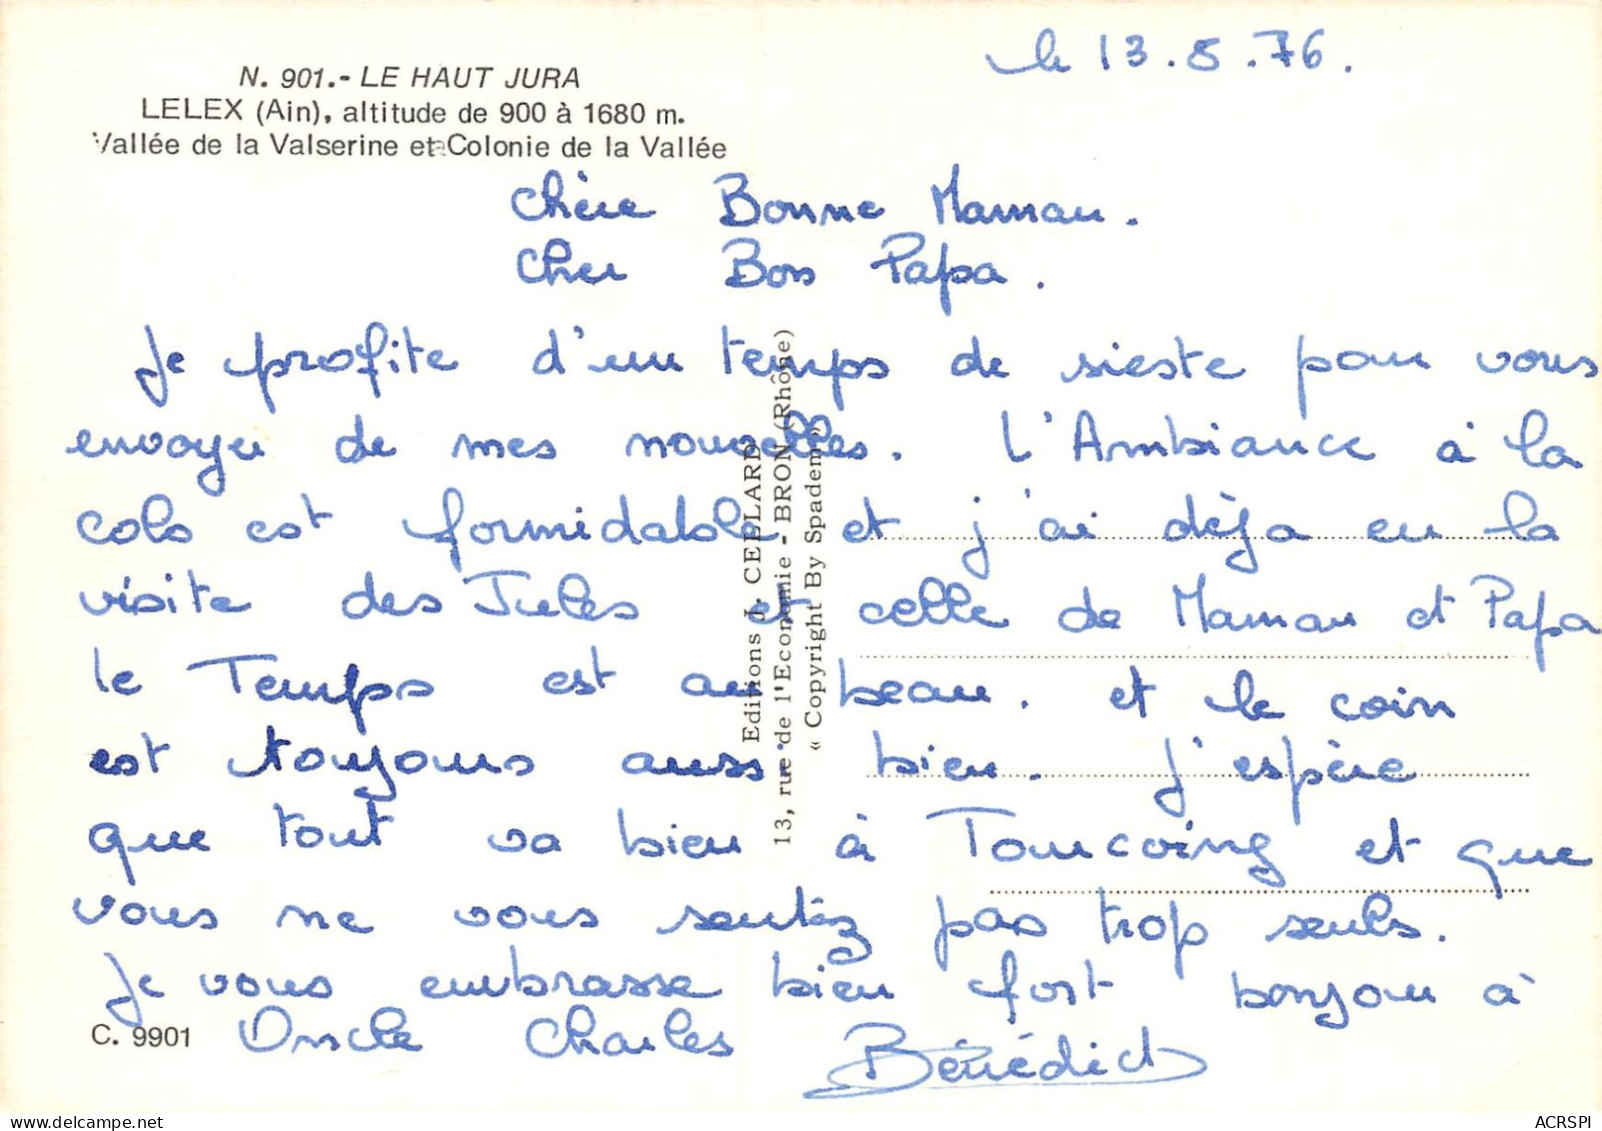 le 13.8.76.
N. 901.- LE HAUT JURA
LELEX (Ain), altitude de 900 à 1680 m.
Vallée de la Valserine et Colonie de la Vallée
Chère Bonne Maman.
Cher Bon Papa.
Je profite d'un temps de sieste pour vous
envoyer de mes nouvelles. L'Ambiance à la
colo est formidable et j'ai déja eu la
visite des Jules et celle de Maman et Papa
le Temps est au beau. et le coin
est toujours aussi bien. J'espère
que tout va bien à Tourcoing et que
vous ne vous sentez pas trop seuls.
Je vous embrasse bien fort bonjour à
Oncle Charles Bénédict
C. 9901
Editions J. CELLARD
13, rue de l'Economie - BRON (Rhône)
« Copyright By Spadem »
ACRSPI